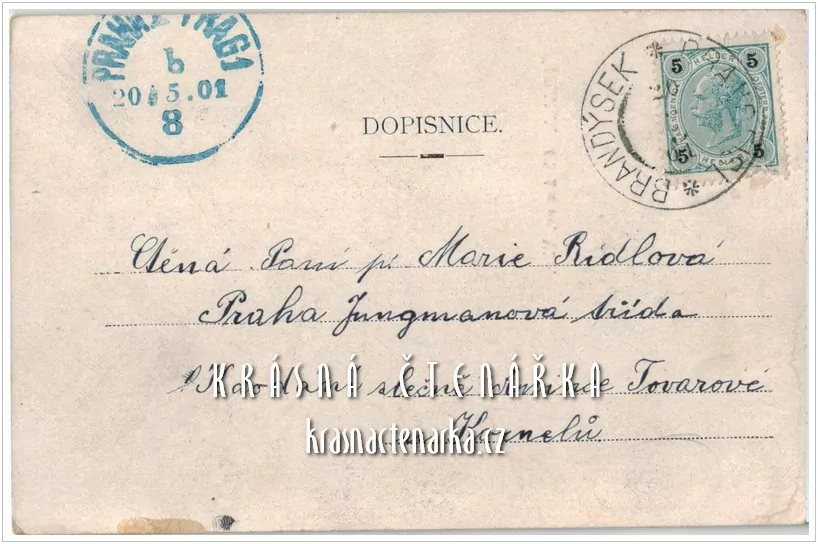 PRAHA 1 PRAG 1
b
20 5.01
8
BRANDÝSEK
5 5
HELLER
5 5
DOPISNICE.
Ctěná Paní pí Marie Ridlová
Praha Jungmanová třída
K dodaní slečně Tovarové
Kornelů
KRÁSNÁ ČTENÁŘKA
krasnactenarka.cz